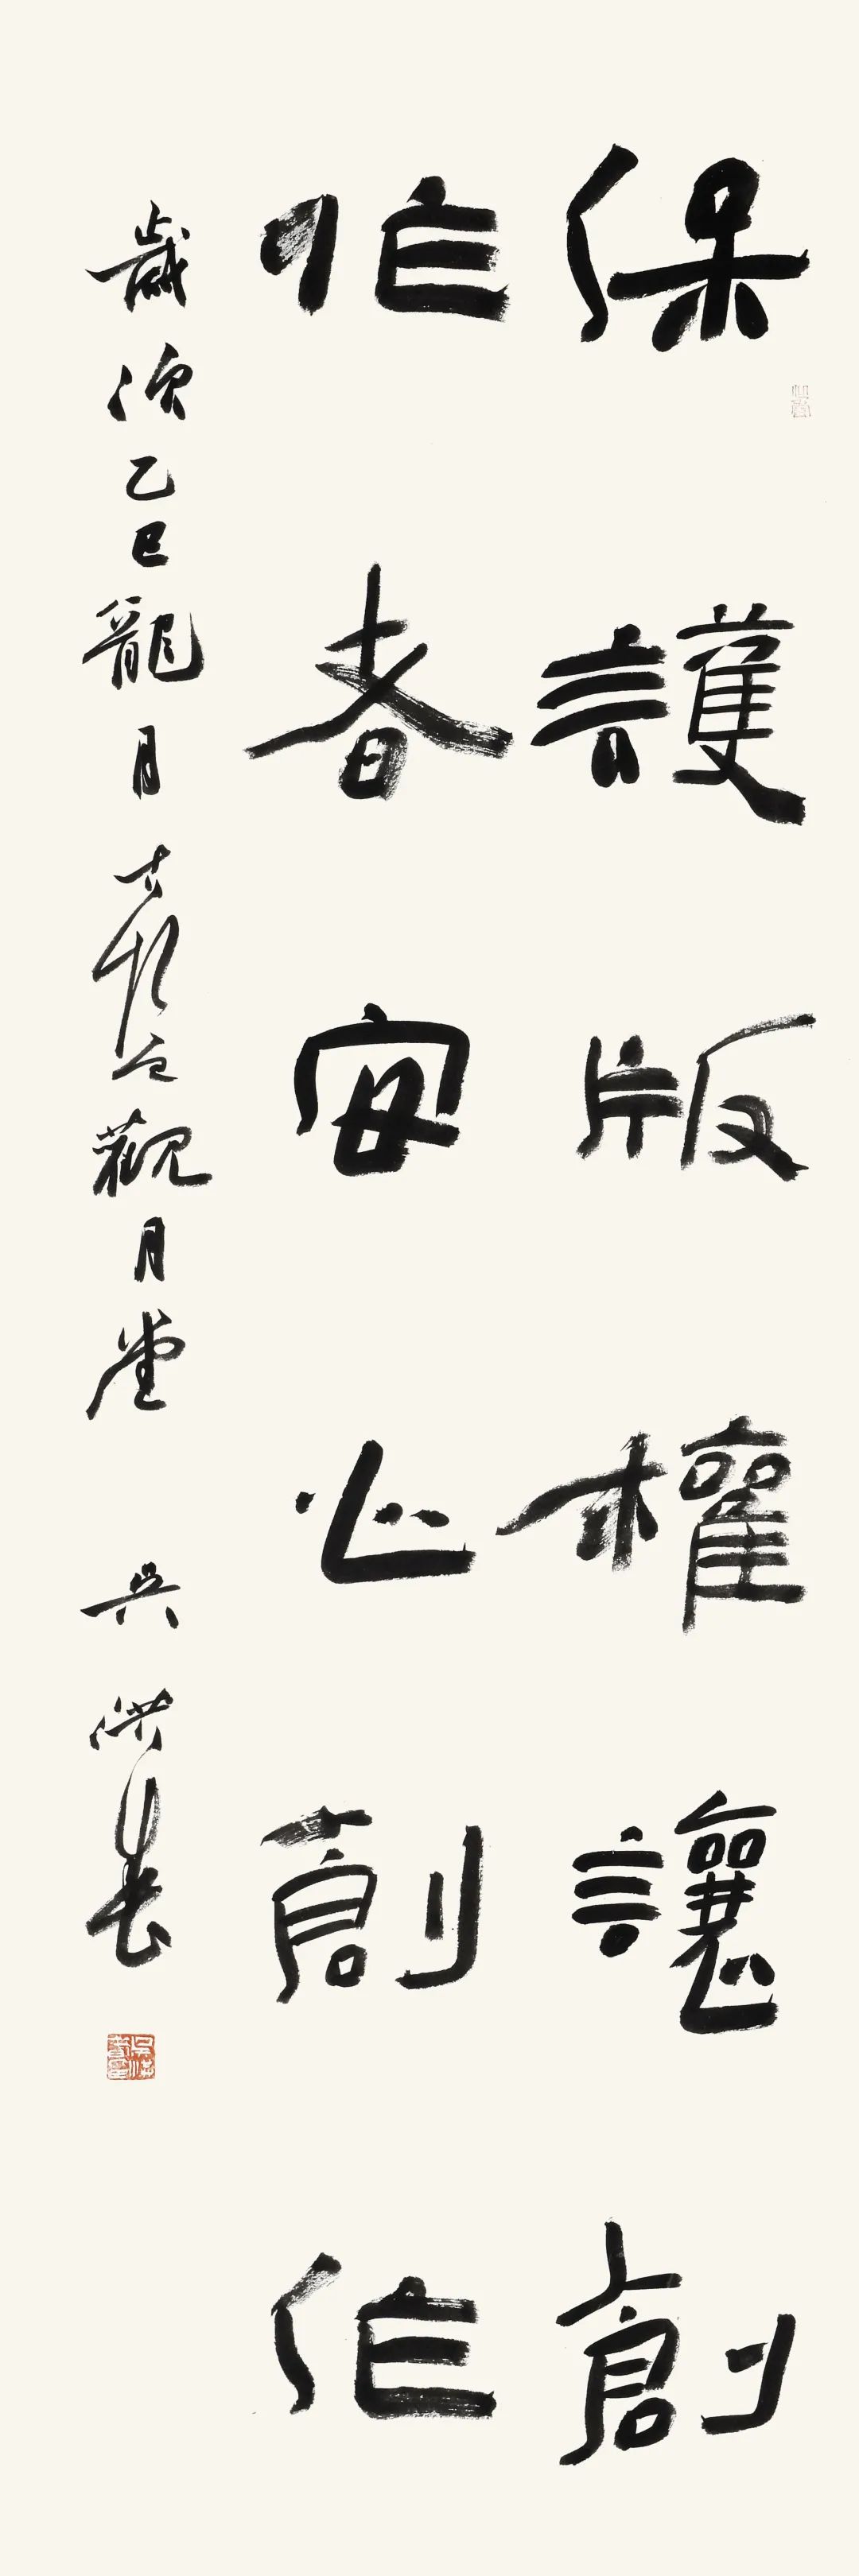 保護版權讓創
作者安心創作
歲次乙巳龍月 觀月堂 吳洪春